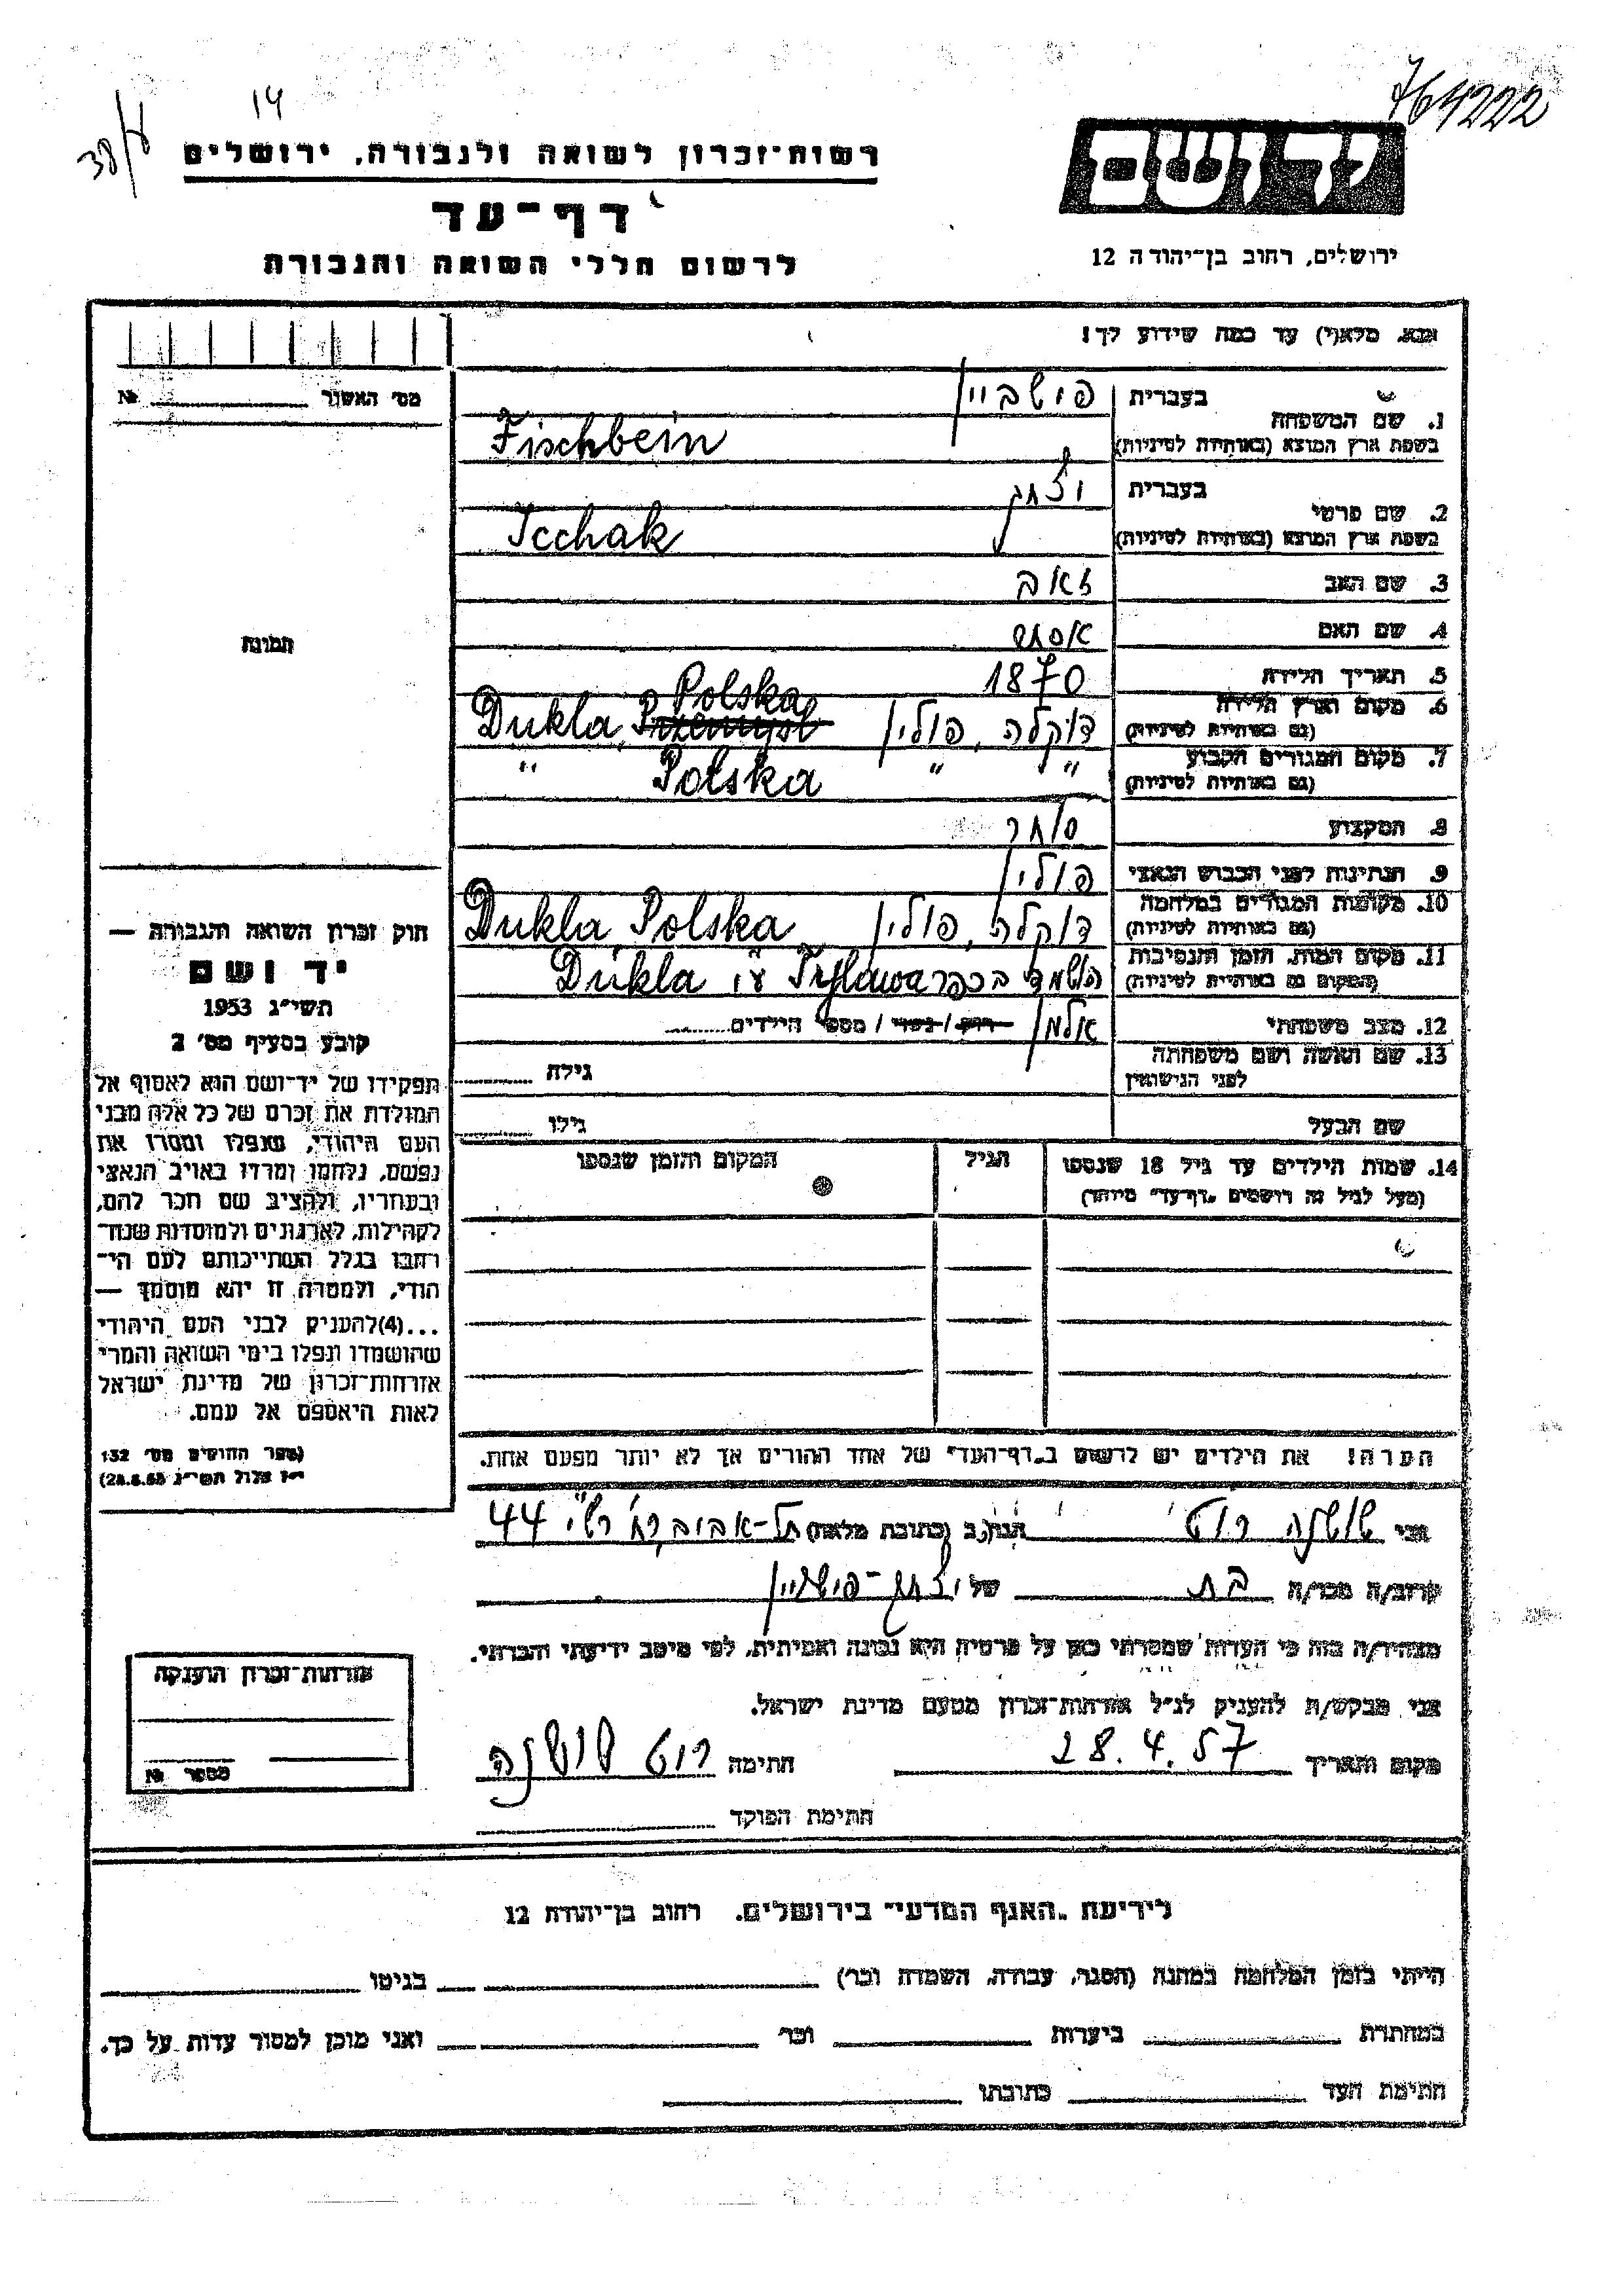 764222
14
38/ע
יד ושם
רשות־זכרון לשואה ולגבורה, ירושלים
דף־עד
ירושלים, רחוב בן־יהודה 12
לרשום חללי השואה והגבורה
אנא, מלא(י) עד כמה שידוע לך!
מס׳ האשור № 
1. שם המשפחה
בעברית פישביין
בשפת ארץ המוצא (באותיות לטיניות) Fischbein
2. שם פרטי
בעברית יצחק
בשפת ארץ המוצא (באותיות לטיניות) Icchak
3. שם האב זאב
4. שם האם אסתר
תמונה
5. תאריך הלידה 1870
6. מקום וארץ הלידה (גם באותיות לטיניות) דוקלה, פולין Dukla, Przemysl Polska
7. מקום המגורים הקבוע (גם באותיות לטיניות) " " Polska "
8. המקצוע סוחר
9. הנתינות לפני הכבוש הנאצי פולין
10. מקומות המגורים במלחמה (גם באותיות לטיניות) דוקלה, פולין Dukla, Polska
11. מקום המות, הזמן והנסיבות (המקום גם באותיות לטיניות) הושמד בכפר ע"י Dukla
12. מצב משפחתי אלמן רווק / נשוי / מספר הילדים
13. שם האשה ושם משפחתה לפני הנישואין גילה
שם הבעל גילו
14. שמות הילדים עד גיל 18 שנספו הגיל המקום והזמן שנספו
(מעל לגיל זה רושמים „דף־עד״ מיוחד)
הערה! את הילדים יש לרשום ב„דף־העד״ של אחד ההורים אך לא יותר מפעם אחת.
חוק זכרון השואה והגבורה —
יד ושם
תשי״ג 1953
קובע בסעיף מס׳ 2
תפקידו של יד־ושם הוא לאסוף אל
המולדת את זכרם של כל אלה מבני
העם היהודי, שנפלו ומסרו את
נפשם, נלחמו ומרדו באויב הנאצי
ובעוזריו, ולהציב שם וזכר להם,
לקהילות, לארגונים ולמוסדות שנח־
רבו בגלל השתייכותם לעם הי־
הודי, ולמטרה זו יהא מוסמך —
...(4)להעניק לבני העם היהודי
שהושמדו ונפלו בימי השואה והמרי
אזרחות־זכרון של מדינת ישראל
לאות היאספם אל עמם.
(ספר החוקים מס׳ 132
י״ז אלול תשי״ג 28.8.53)
אני שושנה רוט הגר/ה ב (כתובת מלאה) תל-אביב רח' רש"י 44
קרוב/ה מכר/ה בת של יצחק-פישביין
מצהיר/ה בזה כי העדות שמסרתי כאן על פרטיה היא נכונה ואמיתית, לפי מיטב ידיעתי והכרתי.
אני מבקש/ת להעניק לנ״ל אזרחות־זכרון מטעם מדינת ישראל.
מקום ותאריך 28.4.57 חתימה רוט שושנה
חתימת הפוקד
אזרחות־זכרון הוענקה
מספר №
לידיעת „האגף המדעי״ בירושלים. רחוב בן־יהודה 12
הייתי בזמן המלחמה במחנה (הסגר, עבודה, השמדה וכו׳) בגיטו
במחתרת ביערות וכו׳ ואני מוכן למסור עדות על כך.
חתימת העד כתובתו